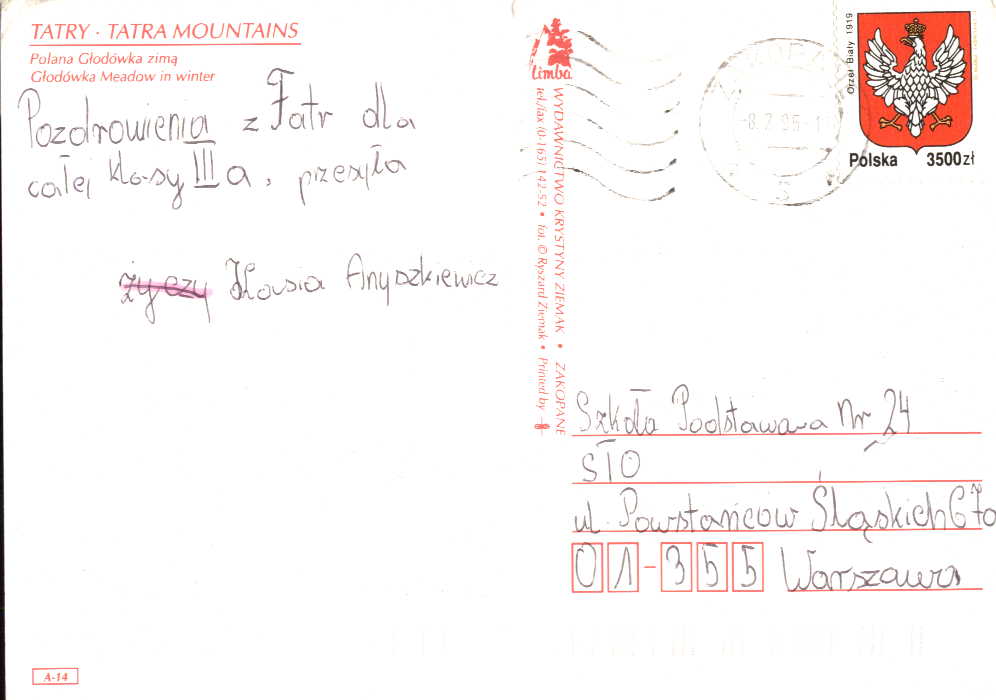 TATRY · TATRA MOUNTAINS
Polana Głodówka zimą
Głodówka Meadow in winter
Pozdrowienia z Tatr dla
całej klasy III a, przesyła
życzy Kasia Anyszkiewicz
A-14
limba
WYDAWNICTWO KRYSTYNY ZIEMAK • ZAKOPANE
tel./fax (0-165) 142-52 • fot. © Ryszard Ziemak • Printed by
Orzeł Biały 1919
Polska 3500zł
Szkoła Podstawawa Nr 24
STO
ul. Powstańców Śląskich 67a
01-355 Warszawa